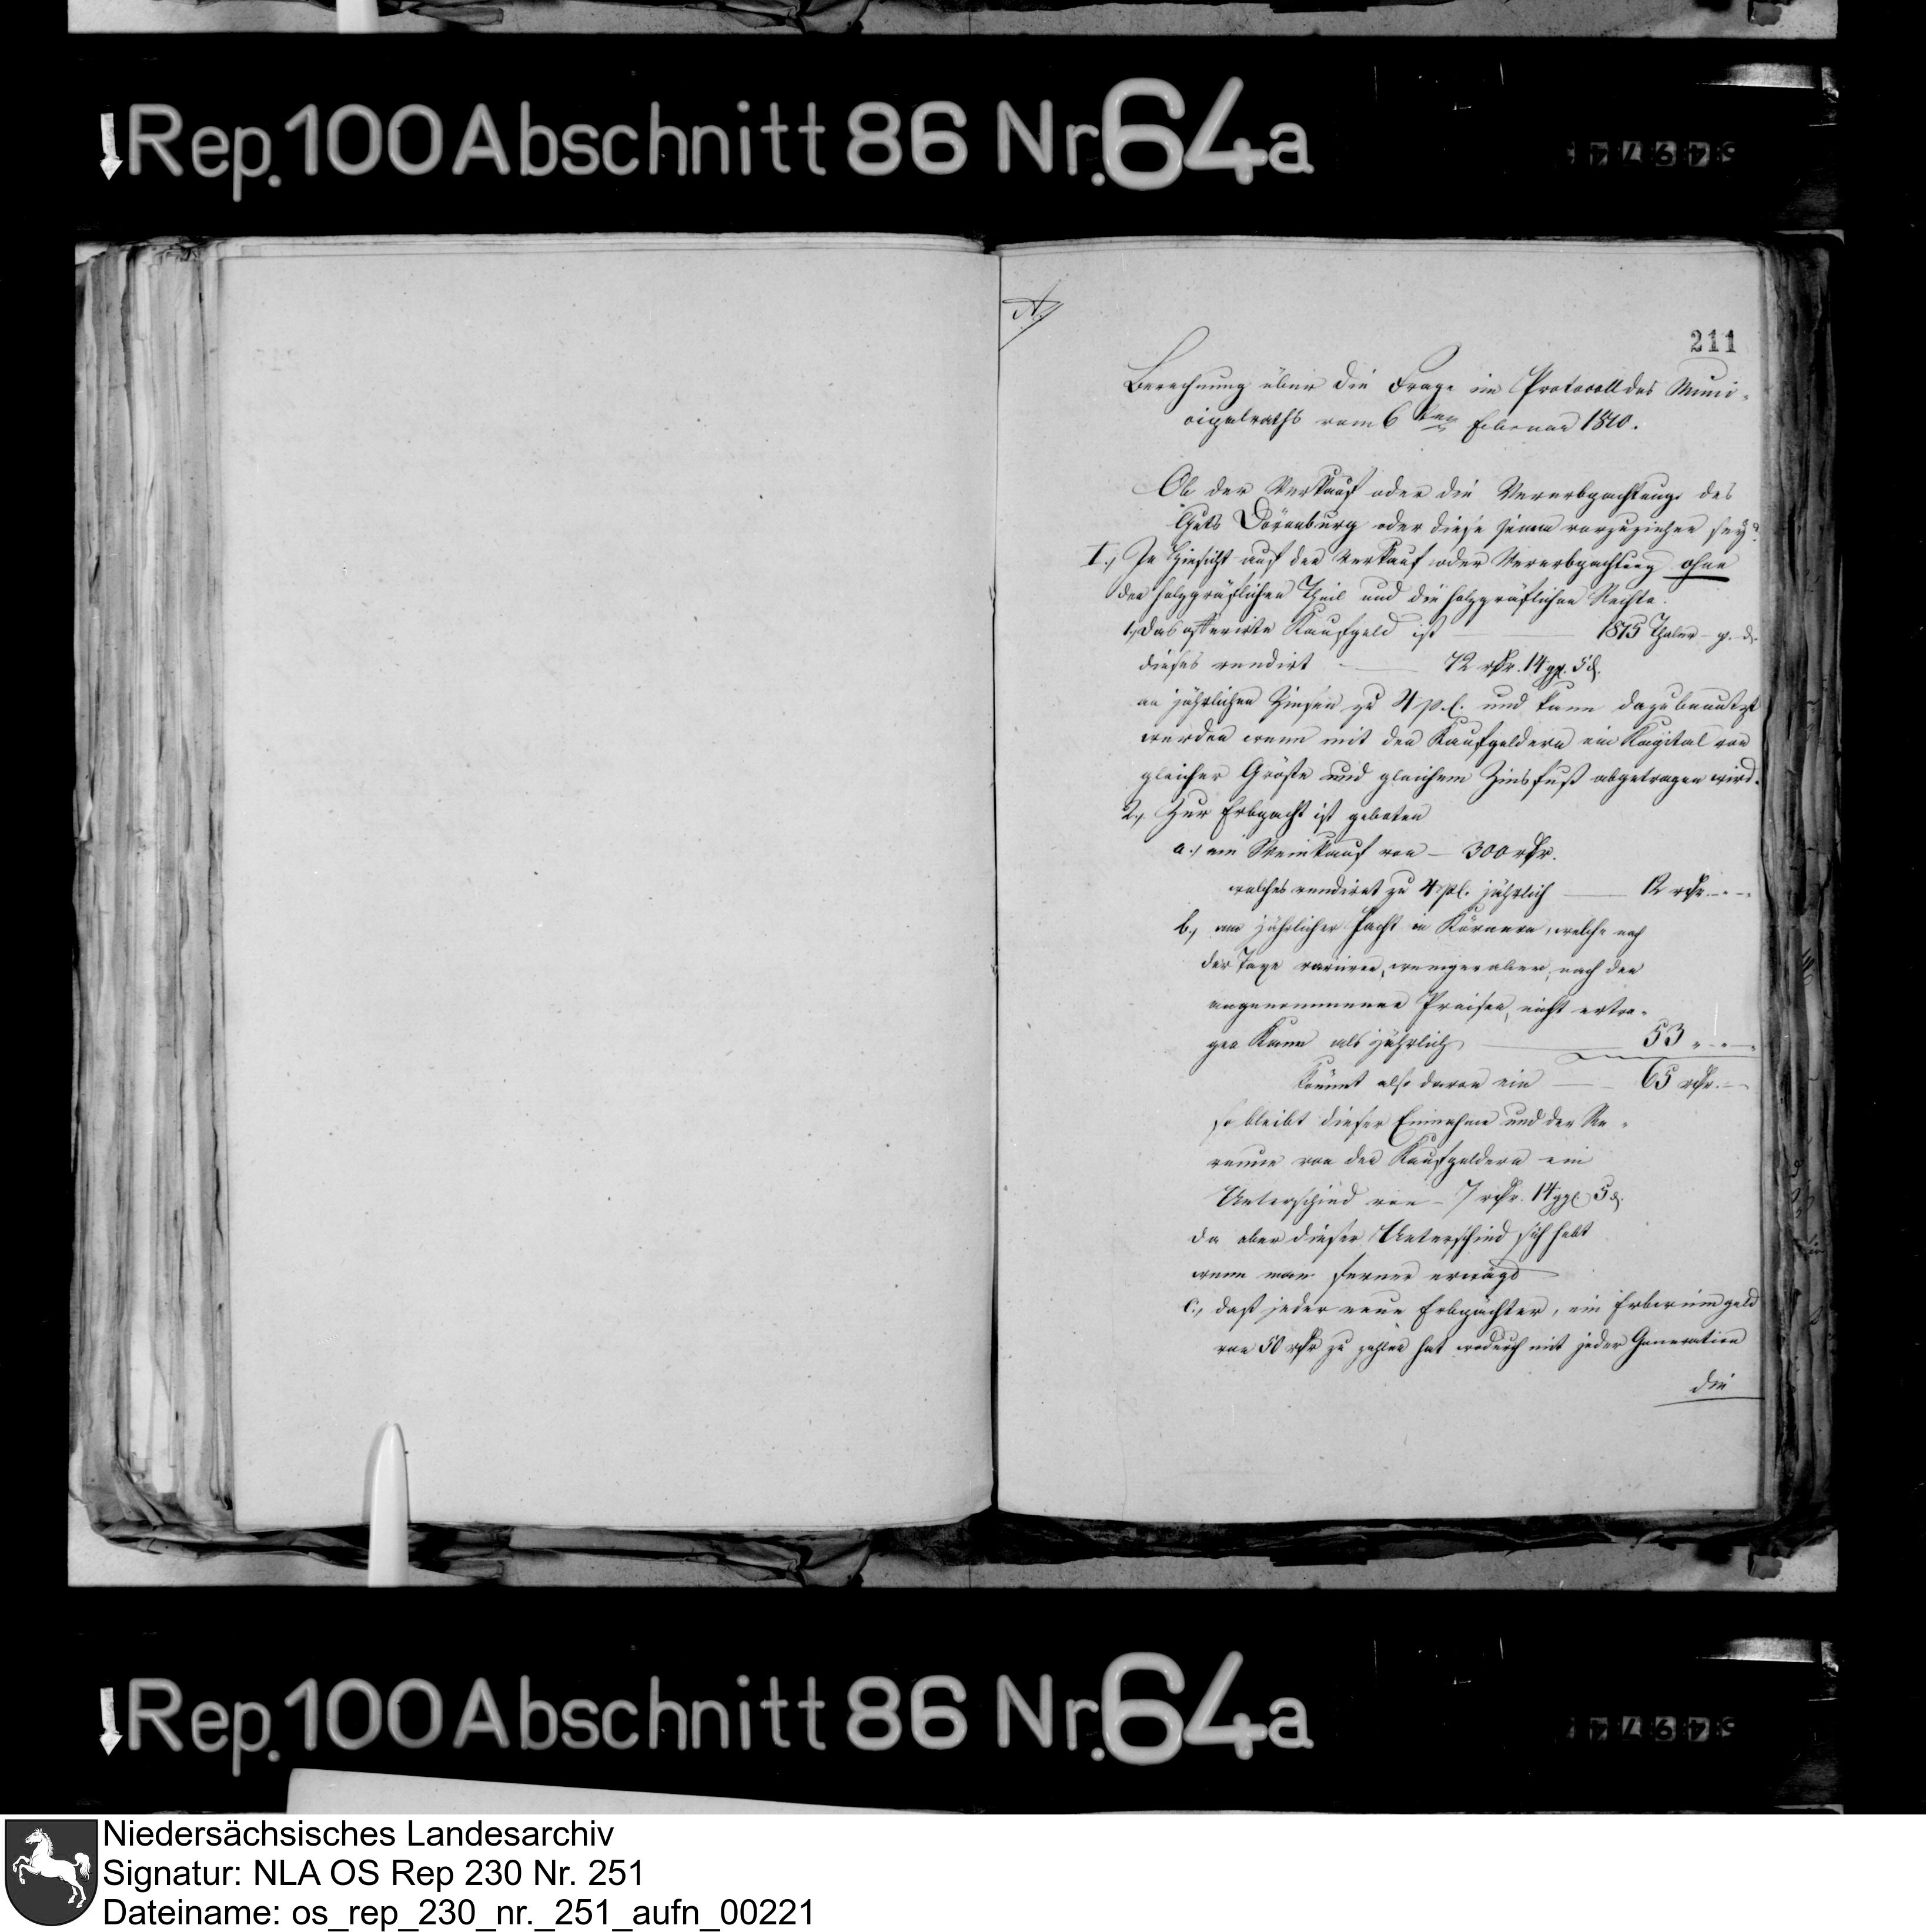 Rep. 100 Abschnitt 86 Nr. 64a
A.
211
Berechnung über die Frage im Protocoll des Muni-
cipalraths vom 6ten Februar 1810.
Ob der Verkauf oder die Vererbpachtung des
Guts Dörenburg oder diese jenem vorzuziehen sey?
I., In Hinsicht auf den Verkauf oder Vererbpachtung ohne
den holzgräflichen Theil und die holzgräflichen Rechte.
1., Das offerirte Kaufgeld ist — 1815 Thaler - g. - d.
dieses rendirt — 72 rthr. 14 ggr. 5 d.
an jährlichen Zinsen zu 4 p.C. und kann dazu benutzt
werden wenn mit den Kaufgeldern ein Kapital von
gleicher Größe und gleichem Zinsfuß abgetragen wird.
2., Zur Erbpacht ist geboten
a., ein Weinkauf von — 300 rthr.
welches rendiret zu 4 pC. jährlich — 12 rthr. - . -
b., an jährlicher Pacht in Körnern, welche nach
der Taxe variiren, weniger aber, nach den
angenommenen Preisen, nicht ertra-
gen kann als jährlich, — 53 " - " -
Kommt also davon ein — 65 rthr. -
so bleibt dieser Einnahme und der Re-
venue von den Kaufgeldern ein
Unterschied von - 7 rthr. 14 ggr. 5 d.
da aber dieser Unterschied sich hebt
wenn man ferner erwägt
c., daß jeder neue Erbpächter, ein Erbwinngeld
von 50 rthr zu zahlen hat wodurch mit jeder Generation
die
Rep. 100 Abschnitt 86 Nr. 64a
Niedersächsisches Landesarchiv
Signatur: NLA OS Rep 230 Nr. 251
Dateiname: os_rep_230_nr._251_aufn_00221